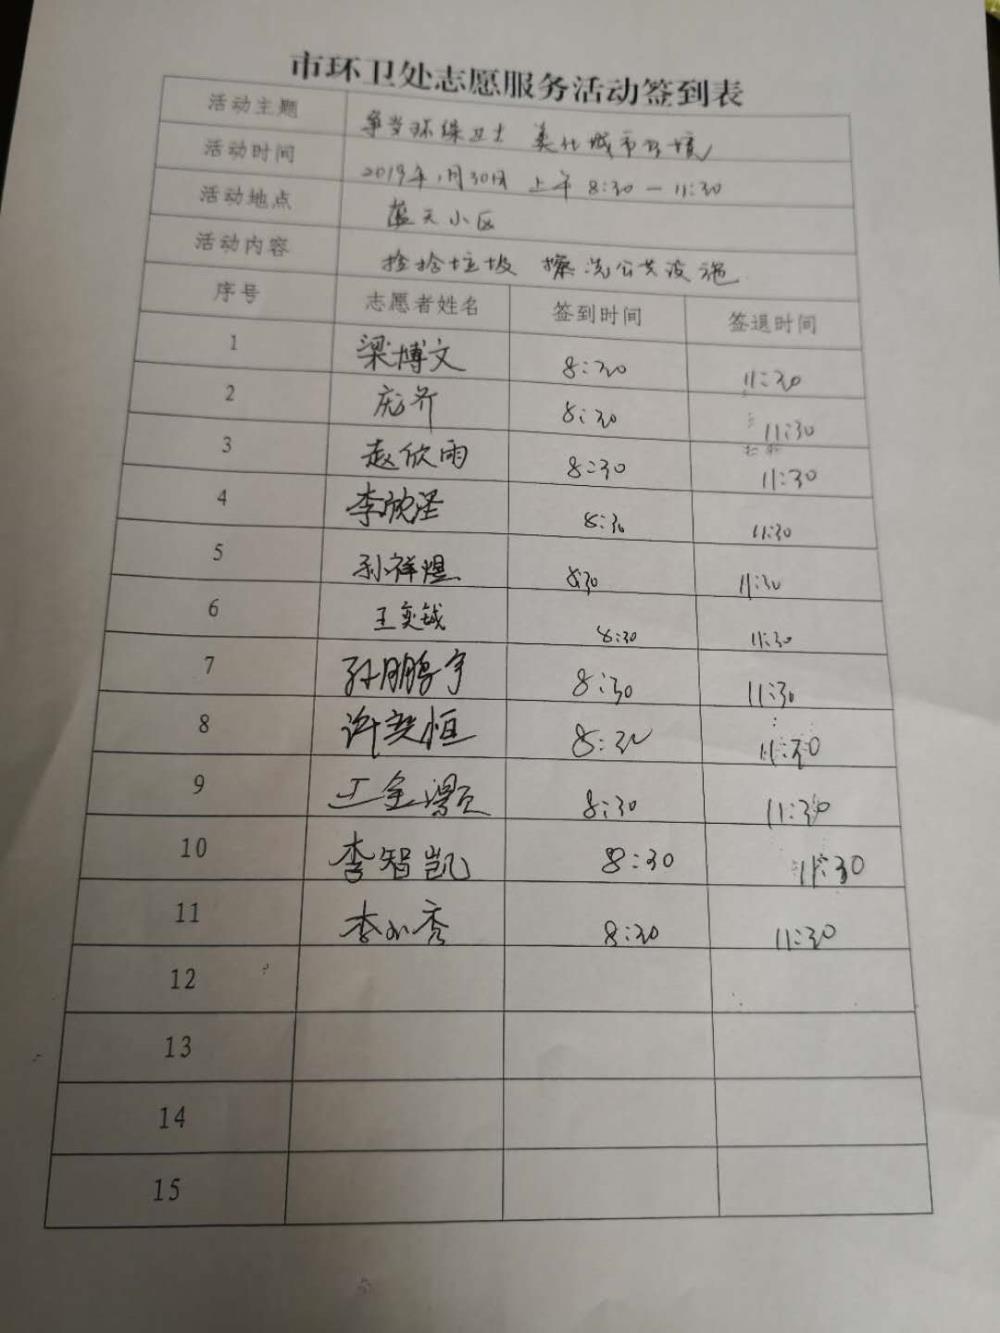 市环卫处志愿服务活动签到表
活动主题 争当环保卫士 美化城市环境
活动时间 2019年1月30日 上午 8:30-11:30
活动地点 蓝天小区
活动内容 捡拾垃圾 擦洗公共设施
序号 志愿者姓名 签到时间 签退时间
1 梁博文 8:30 11:30
2 8:30 11:30
3 赵欣雨 8:30 11:30
4 李欣泽 8:30 11:30
5 孙祥煜 8:30 11:30
6 王奕钺 8:30 11:30
7 孙鹏宇 8:30 11:30
8 许奕恒 8:30 11:30
9 8:30 11:30
10 李智凯 8:30 11:30
11 李小秀 8:30 11:30
12
13
14
15